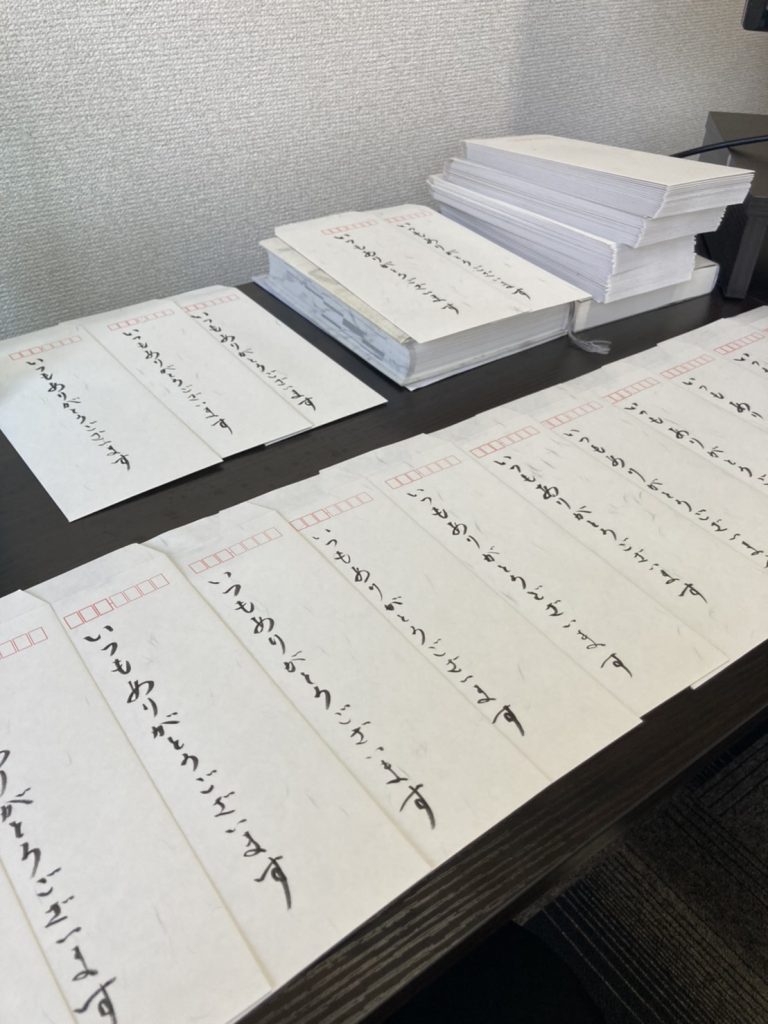 いつもありがとうございます
いつもありがとうございます
いつもありがとうございます
いつもありがとうございます
いつもありがとうございます
りがとうございます
いつもありがとうございます
いつもありがとうございます
いつもありがとうございます
いつもありがとうございます
いつもありがとうございます
いつもありがとうございま
いつもありがとう
いつもあり
いつ